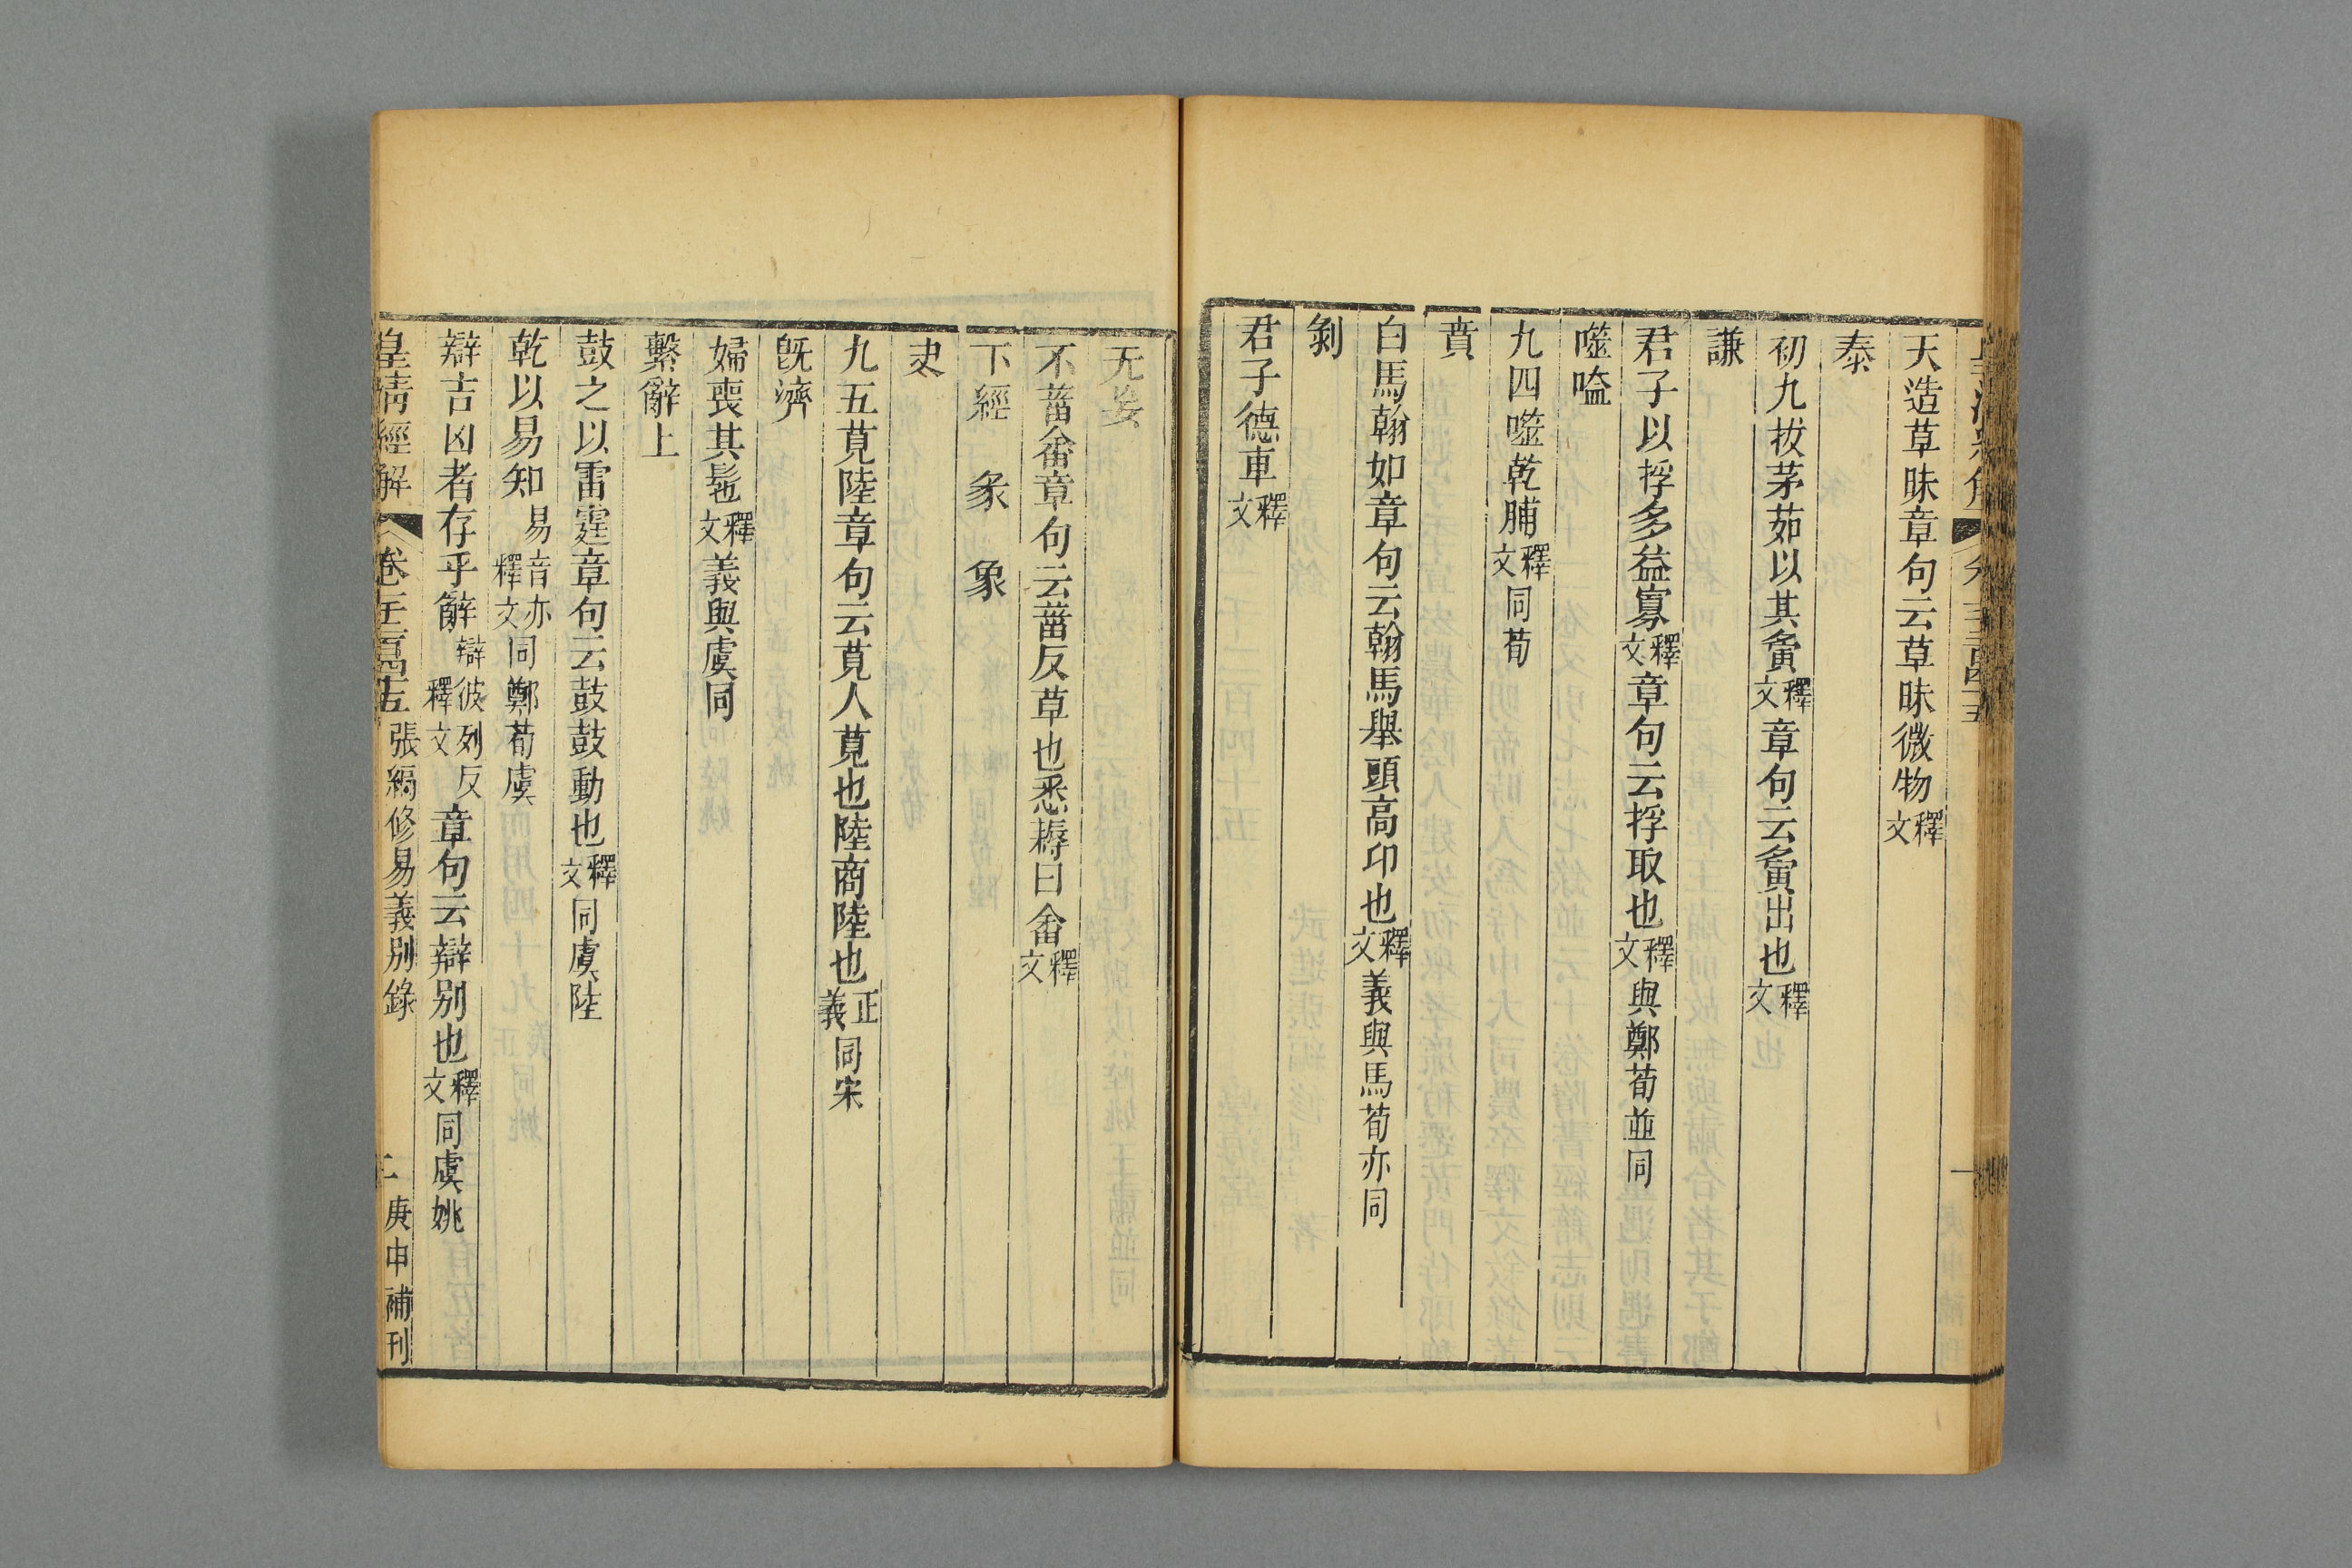 天造草昧章句云草昧微物釋文
泰
初九拔茅茹以其䔰釋文章句云䔰出也釋文
謙
君子以捊多益寡釋文章句云捊取也釋文與鄭荀並同
噬嗑
九四噬乾脯釋文同荀
賁
白馬翰如章句云翰馬舉頭高卬也釋文義與馬荀亦同
剝
君子德車釋文
无妄
不菑畬章句云菑反草也悉耨曰畬釋文
下經 彖 象
夬
九五莧陸章句云莧人莧也陸商陸也正義同宋
旣濟
婦喪其髢釋文義與虞同
繫辭上
鼓之以雷霆章句云鼓鼓動也釋文同虞陸
乾以易知易音亦釋文同鄭荀虞
辯吉凶者存乎辭辯彼列反釋文章句云辯别也釋文同虞姚
皇清經解 卷三百四十五 張編修易義别錄 二 庚申補刊